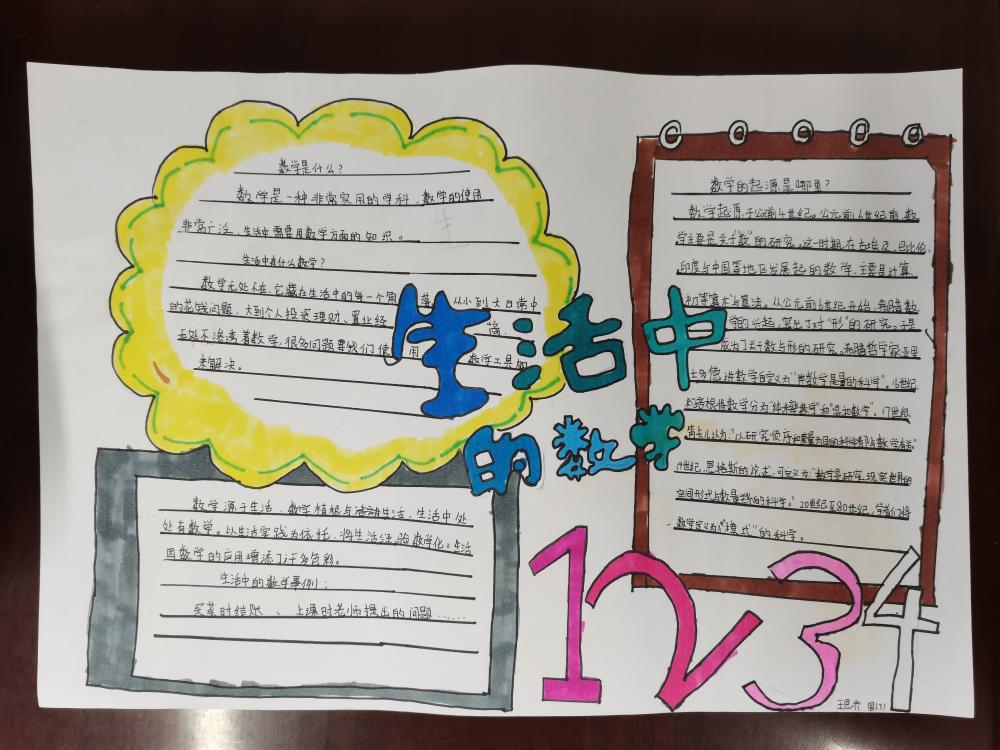 数学是什么?
数学是一种非常实用的学科,数学的使用
非常广泛,生活中需要用数学方面的知识。
生活中有什么数学?
数学无处不在,它藏在生活中的每一个角落,从小到大日常中
的花钱问题,大到个人投资理财、置业经商,
无处不渗透着数学,很多问题要我们使用数学工具
来解决。
生活中
的数学
数学源于生活,数学植根与生活,生活中处
处有数学。以生活实践为依托,将生活经验数学化。生活
因数学的应用增添了许多色彩。
生活中的数学事例:
买菜时结账、上课时老师提出的问题……
数学的起源是哪里?
数学起原于公前4世纪。公元前6世纪前,数
学主要是关于"数"的研究。这一时期,在古埃及、巴比伦、
印度与中国等地区发展起的数学,主要是计算、
初等算术与算法。从公元前6世纪开始,希腊数
学的兴起,突出了对"形"的研究。于是
成为了关于数与形的研究。希腊哲学家亚里
士多德讲数学自定义为"数学是量的科学"。16世纪,
根据数学分为"纯粹数学"和"混和数学"。17世纪,
笛卡儿认为:"以研究顺序和度量为目的科学都与数学有关"
19世纪,恩格斯的论述,可定义为:"数学是研究现实世界的
空间形式与数量关系的科学。"20世纪至80世纪,学者们将
数学定义为:"模式"的科学。
1234
四(7)